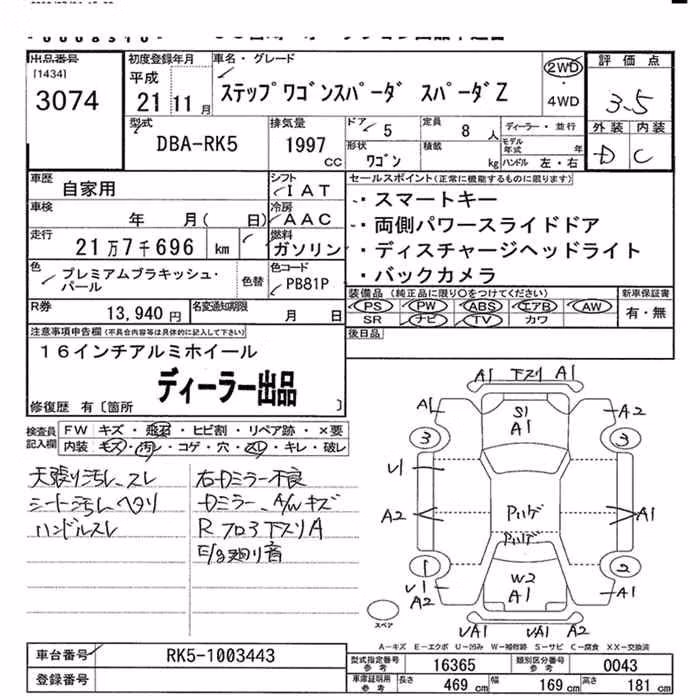 出品番号
[1434]
3074
初度登録年月
平成
21 11 月
車名・グレード
ステップワゴンスパーダ スパーダZ
2WD
・
4WD
評価点
3.5
外装 内装
D C
型式
DBA-RK5
排気量
1997
CC
ドア
5
定員
8 人
形状
ワゴン
積載
kg
ディーラー・並行
モデル年式 年
ハンドル 左・右
車歴
自家用
シフト
IAT
車検
年 月( 日)
冷房
AAC
走行
21万7千696 km
燃料
ガソリン
色
プレミアムブラキッシュ・
パール
色替
色コード
PB81P
R券
13,940 円
名変通知期限
月 日
セールスポイント(正常に機能するものに限ります)
・スマートキー
・両側パワースライドドア
・ディスチャージヘッドライト
・バックカメラ
装備品 (純正品に限り○をつけてください)
PS PW ABS エアB AW
SR ナビ TV カワ
新車保証書
有・無
後日品
注意事項申告欄(不具合内容等は具体的に記入して下さい)
16インチアルミホイール
ディーラー出品
修復歴 有〔箇所 〕
検査員
記入欄
FW キズ・飛石・ヒビ割・リペア跡・×要
内装 モズ・汚レ・コゲ・穴・スレ・キレ・破レ
天張り汚レ、スレ
シート汚レ ヘタリ
ハンドルスレ
右Dミラー不良
Dミラー、A/Wキズ
R フロア下スリA
E/g廻り音
A1 下スリ A1
A1 S1 A1 A2
3 3
U1
A2 Pハゲ A1
Pハゲ
1 2
U1 A2 W2 A1 A1
UA1 UA1 A2
スペア
A－キズ E－エクボ U－凹み W－補修跡 S－サビ C－腐食 XX－交換済
車台番号
RK5-1003443
登録番号
型式指定番号
参考
16365
類別区分番号
参考
0043
車庫証明用
参考
長さ 469 cm 幅 169 cm 高さ 181 cm